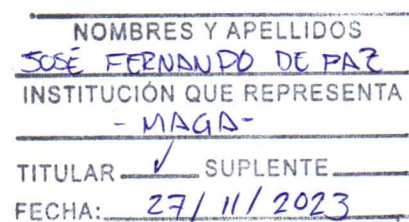 NOMBRES Y APELLIDOS
JOSÉ FERNANDO DE PAZ
INSTITUCIÓN QUE REPRESENTA
- MAGA-
TITULAR ✓ SUPLENTE
FECHA: 27/11/2023